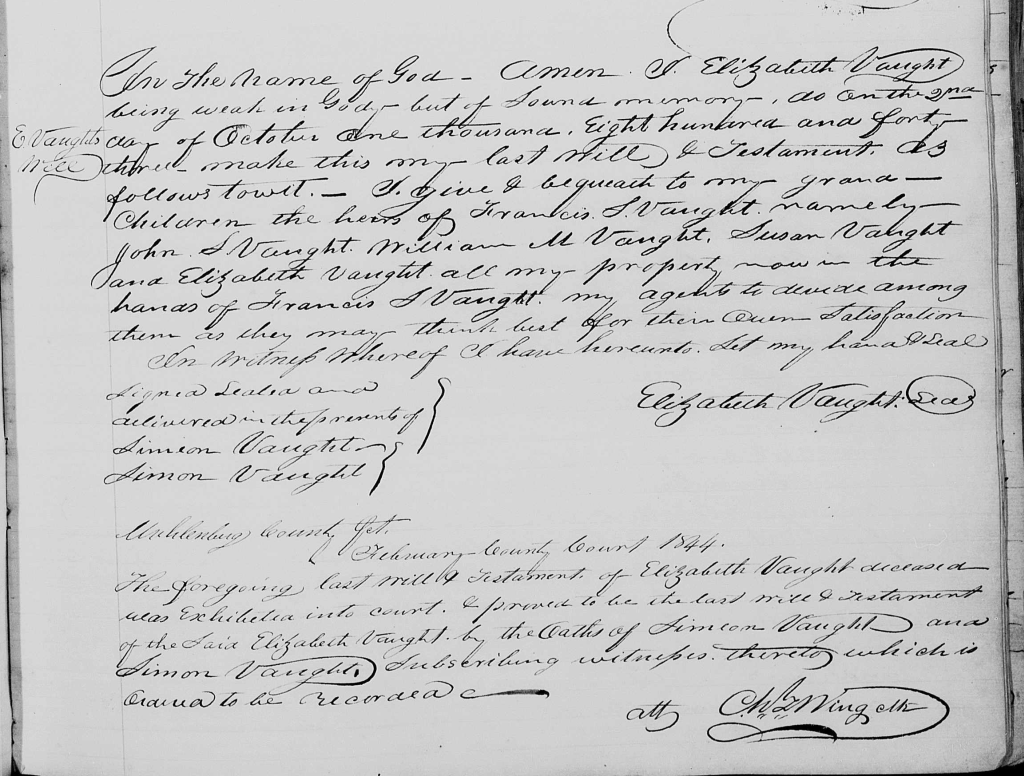 In the name of God - Amen. I. Elizabeth Vaught
being weak in Body - but of Sound memory, do on the 2nd
E Vaughts
Will
day of October one thousand, Eight hundred and forty
three - make this my last Will & Testament. as
follows towit. - I give & bequeath to my grand -
Children the heirs of Francis. S. Vaught. namely -
John. S Vaught. William M Vaught. Susan Vaught
and Elizabeth Vaught. all my property now in the
hands of Francis S Vaught. my agents to devide among
them as they may think best for their Own Satisfaction
In Witness Whereof I have hereunto. Set my hand & Seal
Signed Sealed and
delivered in the presents of
Simeon Vaught
Simon Vaught
Elizabeth Vaught. Seal
Muhlenburg County Sct.
February County Court 1844.
The foregoing last Will & Testament of Elizabeth Vaught deceased
was Exhibited into court. & proved to be the last will & Testament
of the Said Elizabeth Vaught. by the Oaths of Simeon Vaught and
Simon Vaught, Subscribing witnesses. thereto which is
Ordered to be Recorded
att Chs F Wing clk